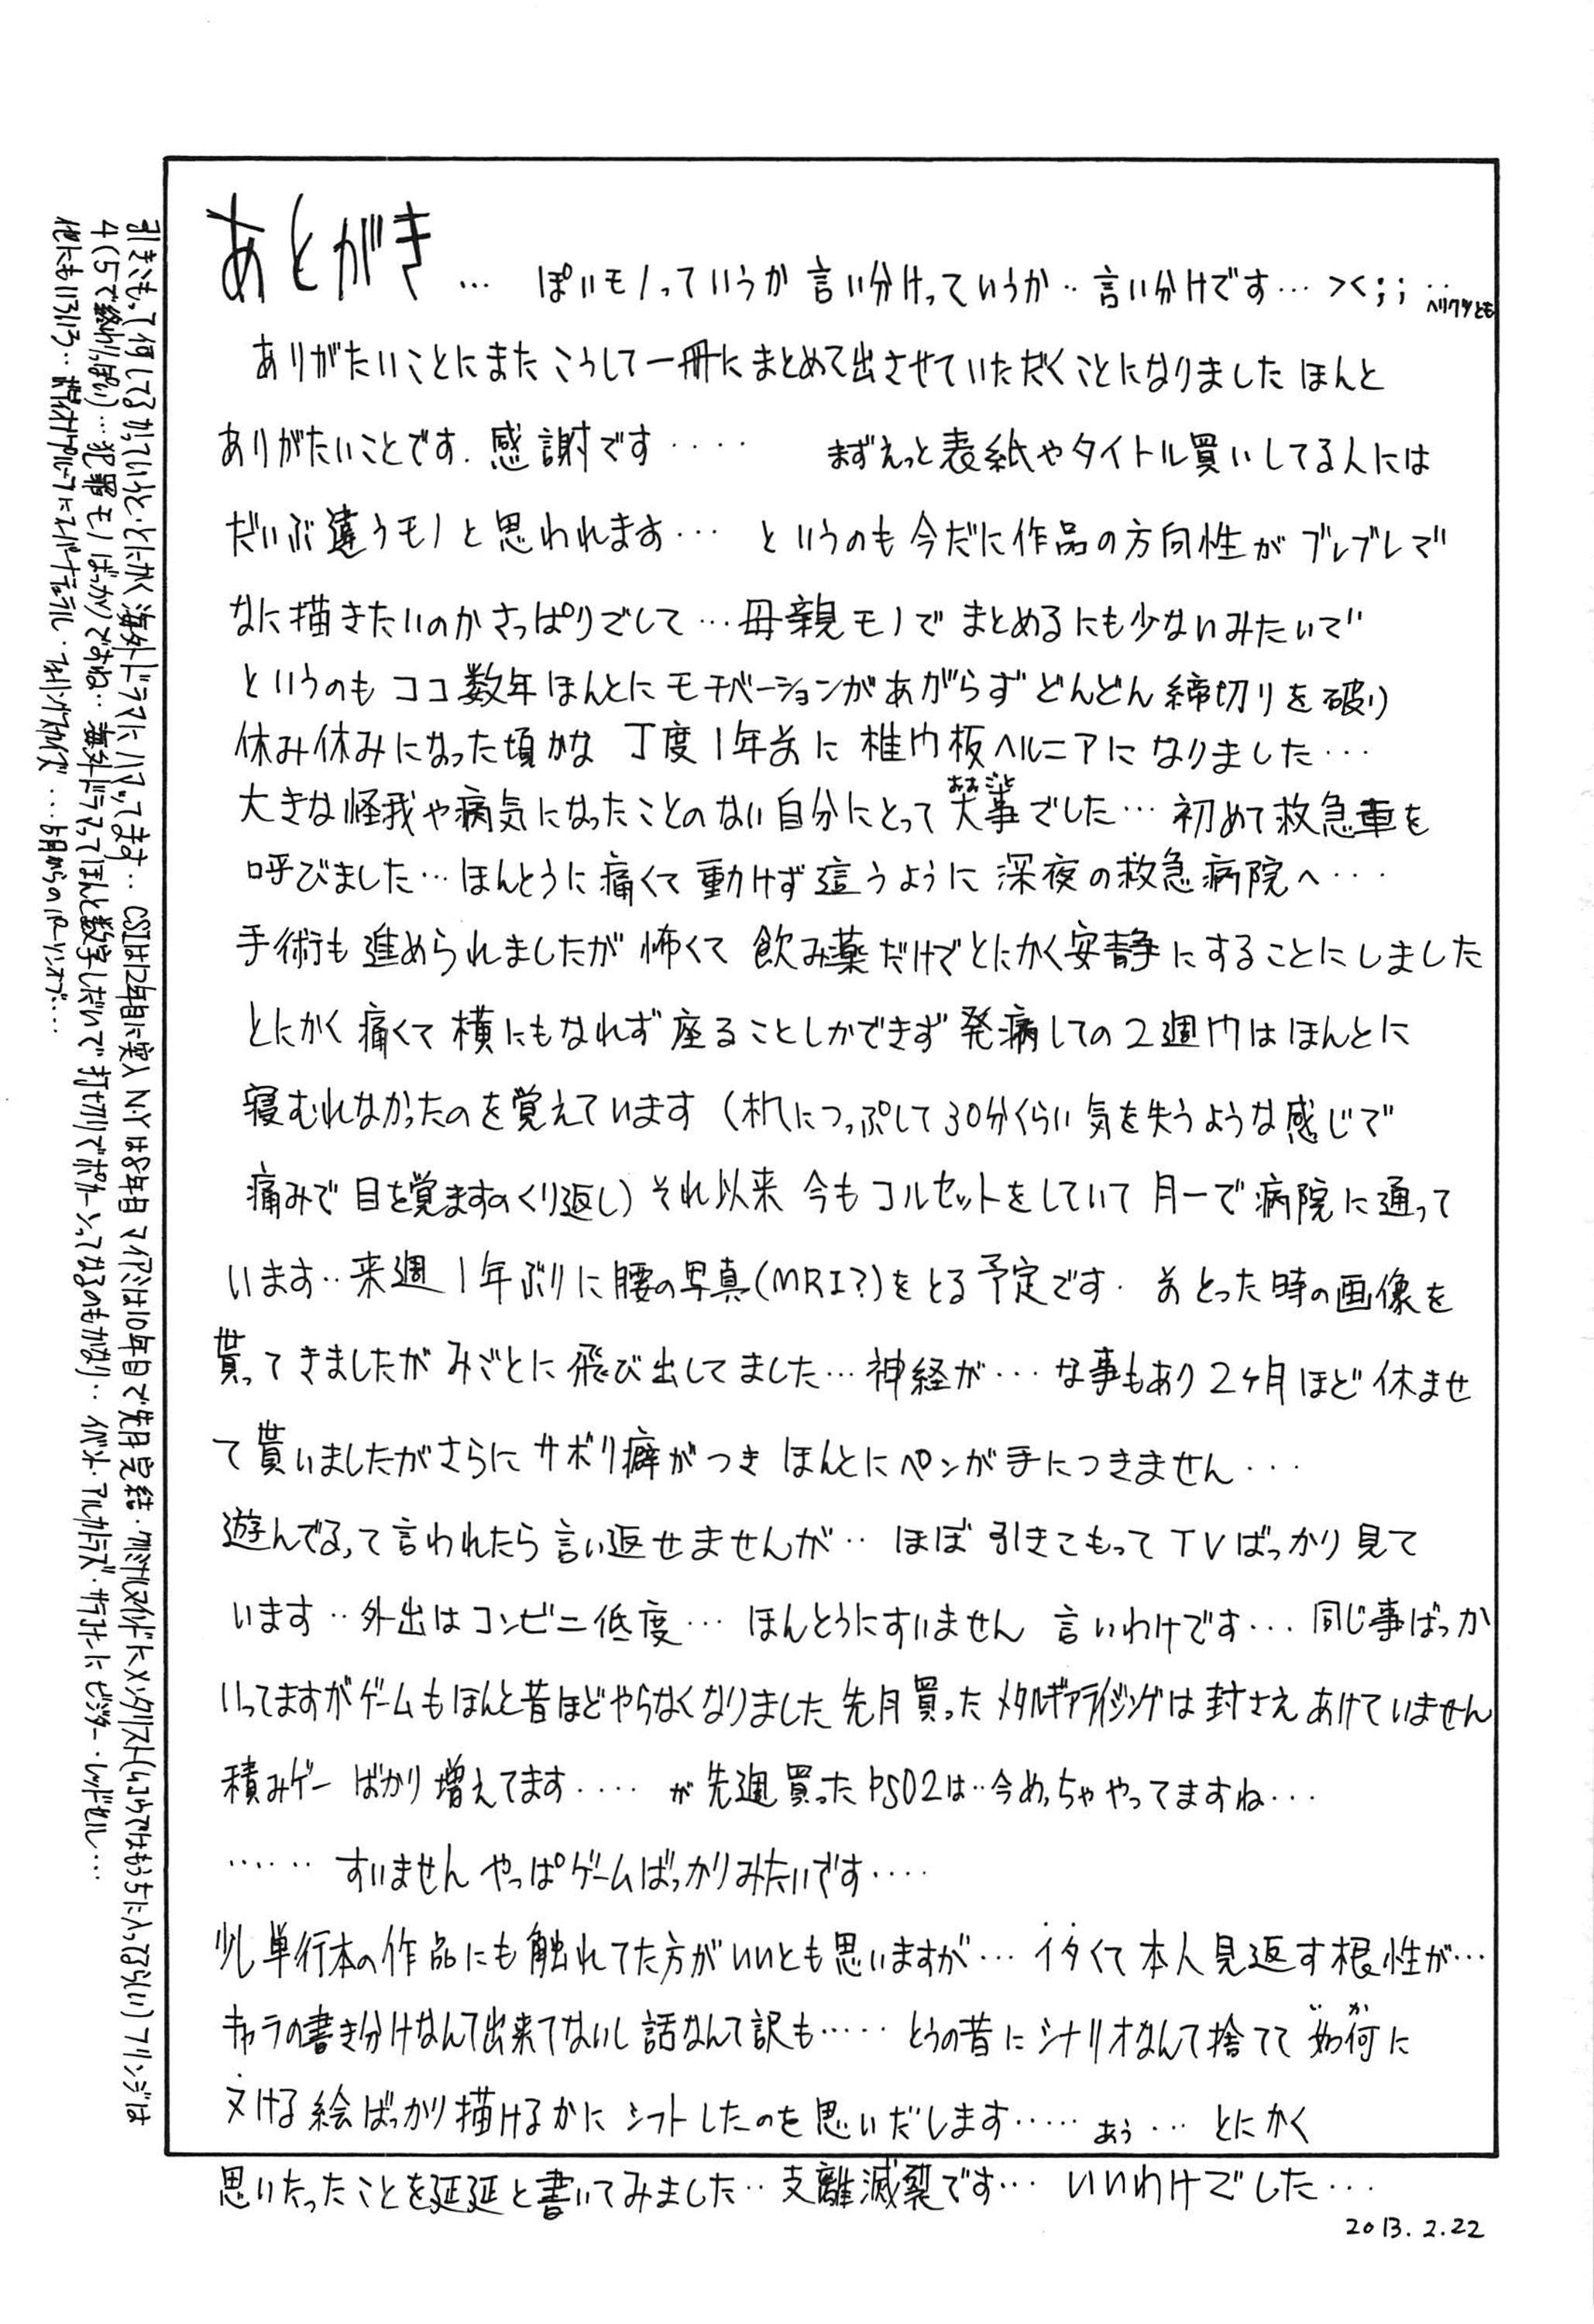 あとがき… ぽいモノっていうか言い分けっていうか‥言い分けです…><;;‥ヘリクツとも
ありがたいことにまたこうして一冊にまとめて出させていただくことになりましたほんと
ありがたいことです.感謝です‥‥ まずえっと表紙やタイトル買いしてる人には
だいぶ違うモノと思われます… というのも今だに作品の方向性がブレブレで
なに描きたいのかさっぱりでして…母親モノでまとめるにも少ないみたいで
というのもココ数年ほんとにモチベーションがあがらずどんどん締切りを破り
休み休みになった頃かな 丁度1年前に椎間板ヘルニアになりました…
大きな怪我や病気になったことのない自分にとって大事おおごとでした…初めて救急車を
呼びました…ほんとうに痛くて動けず這うように深夜の救急病院へ…
手術も進められましたが怖くて飲み薬だけでとにかく安静にすることにしました
とにかく痛くて横にもなれず座ることしかできず発病しての2週間はほんとに
寝むれなかったのを覚えています(机につっぷして30分くらい気を失うような感じで
痛みで目を覚ますのくり返し)それ以来今もコルセットをしていて月一で病院に通って
います‥来週1年ぶりに腰の写真(MRI?)をとる予定です.前とった時の画像を
貰ってきましたがみごとに飛び出してました…神経が…な事もあり2ヶ月ほど休ませ
て貰いましたがさらにサボリ癖がつきほんとにペンが手につきません…
遊んでるって言われたら言い返せませんが‥ほぼ引きこもってTVばっかり見て
います‥外出はコンビニ低度…ほんとうにすいません 言いわけです…同じ事ばっか
いってますがゲームもほんと昔ほどやらなくなりました先月買ったメタルギアライジングは封さえあけていません
積みゲーばかり増えてます‥‥が先週買ったPSO2は‥今めっちゃやってますね…
‥‥‥すいませんやっぱゲームばっかりみたいです‥‥
少し単行本の作品にも触れてた方がいいとも思いますが…イタくて本人見返す根性が…
キャラの書き分けなんて出来てないし話なんて訳も‥‥‥とうの昔にシナリオなんて捨てて如何いかに
ヌける絵ばっかり描けるかにシフトしたのを思いだします‥‥‥あぅ…とにかく
思いたったことを延延と書いてみました‥支離滅裂です…いいわけでした…
2013.2.22
引きこもって何してるかっていうと・とにかく海外ドラマにハマってます‥CSIは12年目に突入N.Yは8年目マイアミは10年目で先月完結・クリミナルマインドにメンタリスト(ムコウではもう5に入ってるらしい)フリンジは
4(5で終わりっぽい)…犯罪モノばっかりですね‥海外ドラマってほんと数字しだいで打ち切りでポカーンってなるのもかなり‥イベント・アルカトラズ・サラコナーに ビジター・レッドセル…
他にもいろいろ‥ボディオブプルーフにスーパーナチュラル・フォーリングスカイズ…5月からのパーソンオブ‥‥